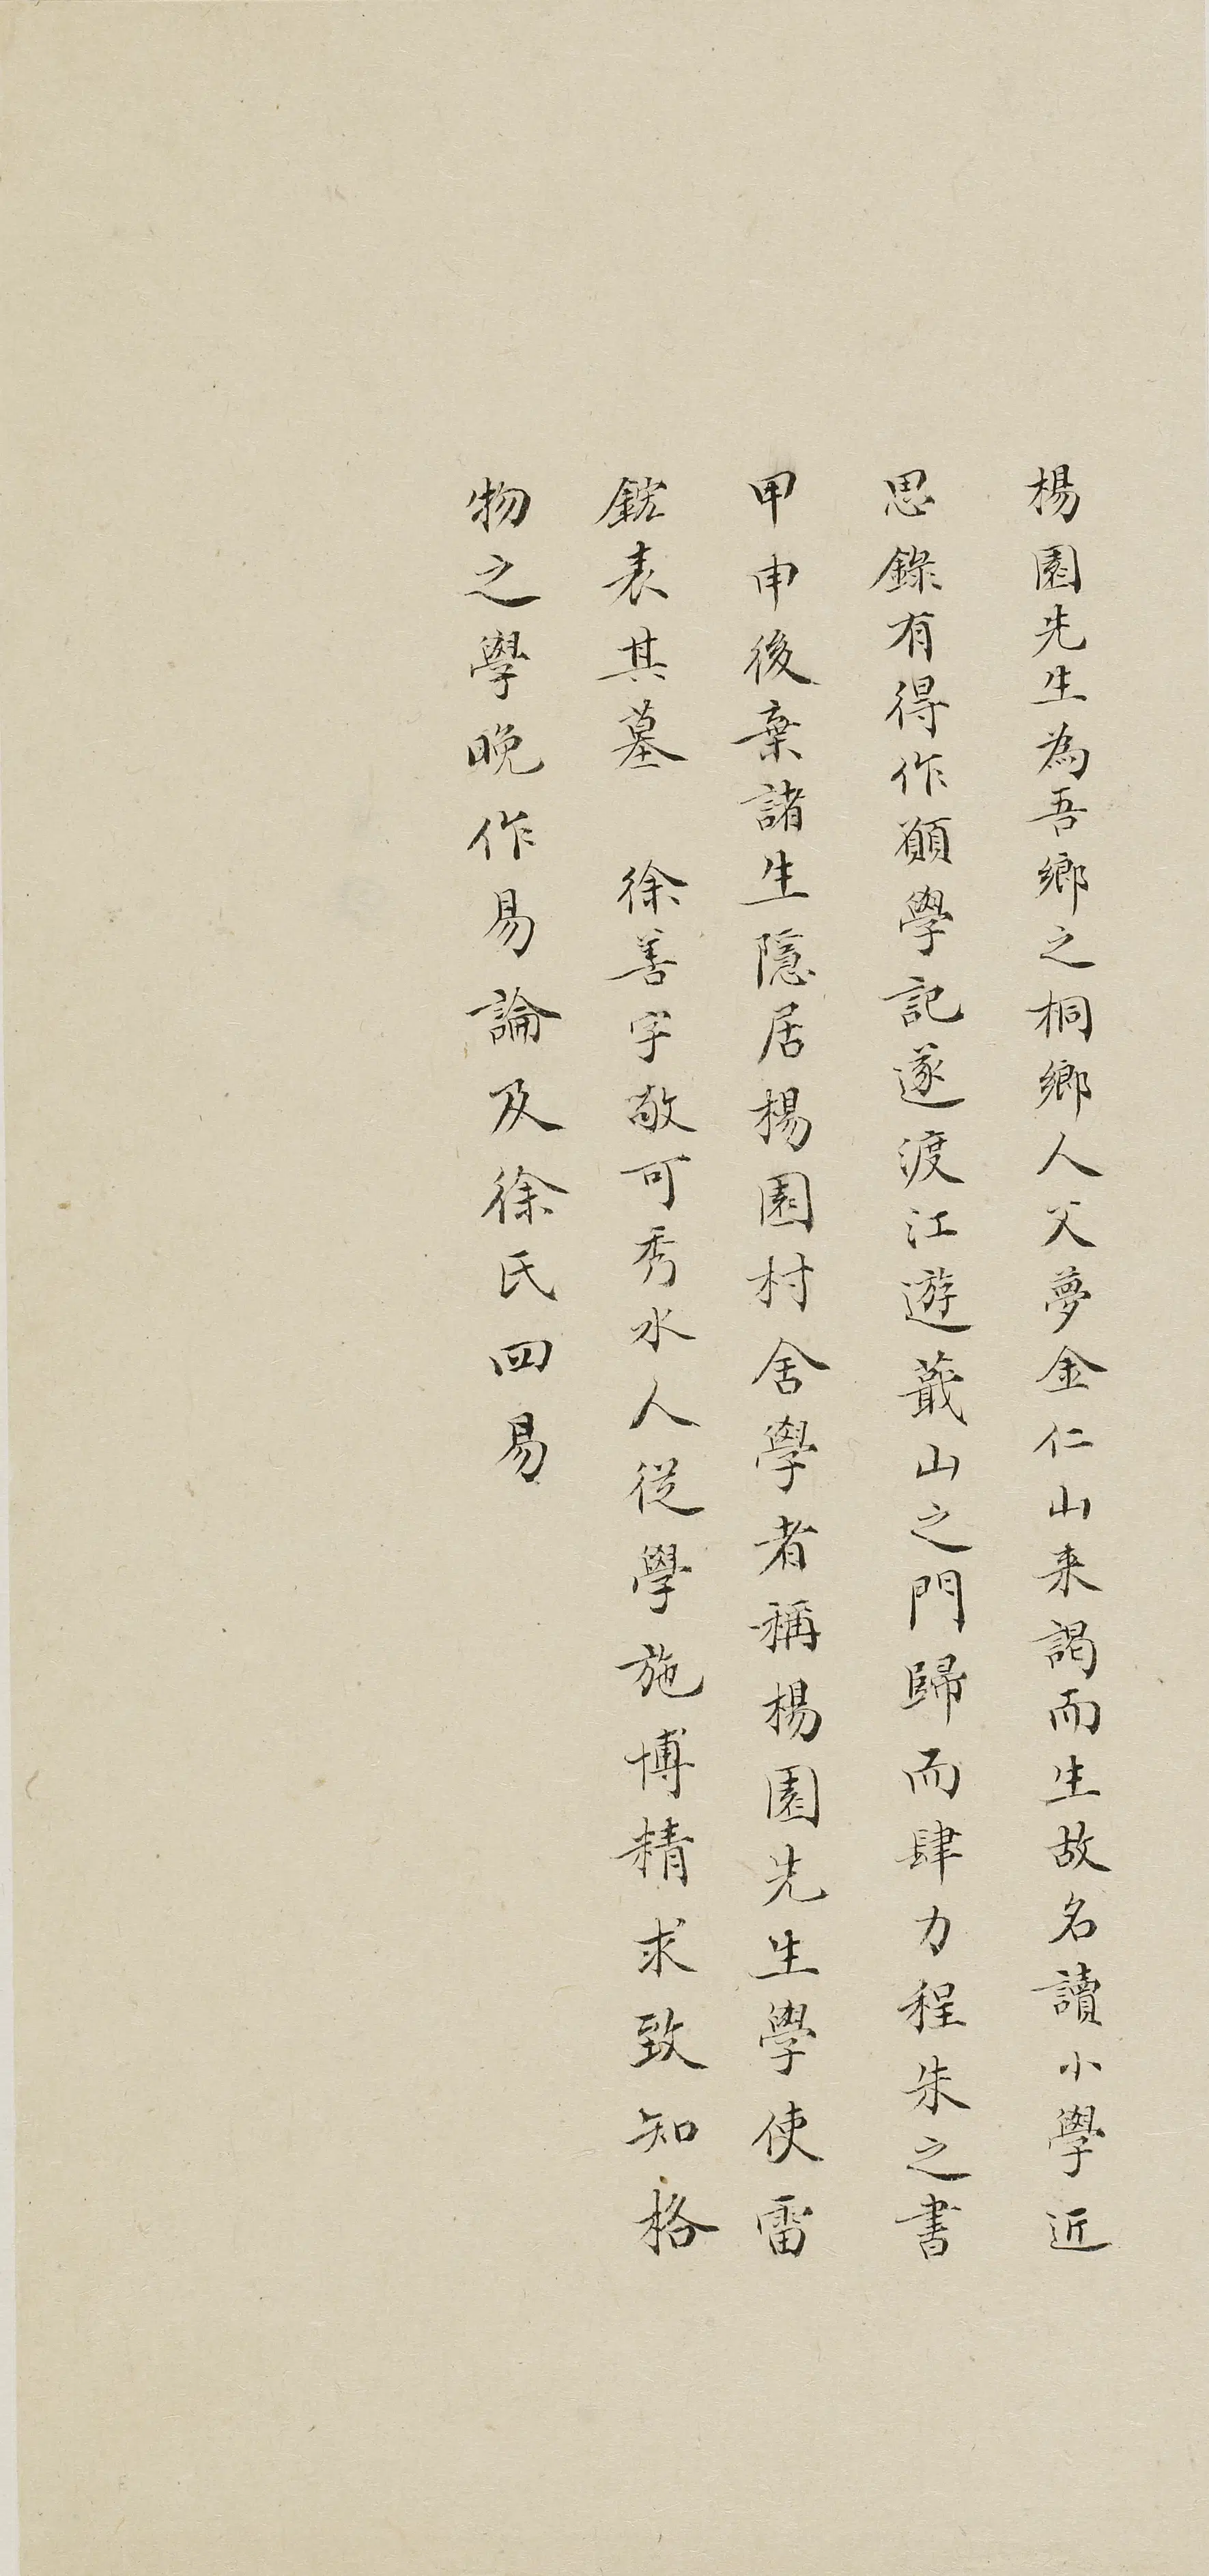 楊園先生為吾鄉之桐鄉人父夢金仁山来謁而生故名讀小學近
思錄有得作願學記遂渡江遊蕺山之門歸而肆力程朱之書
甲申後棄諸生隱居楊園村舍學者稱楊園先生學使雷
鋐表其墓 徐善字敬可秀水人從學施博精求致知格
物之學晚作易論及徐氏四易